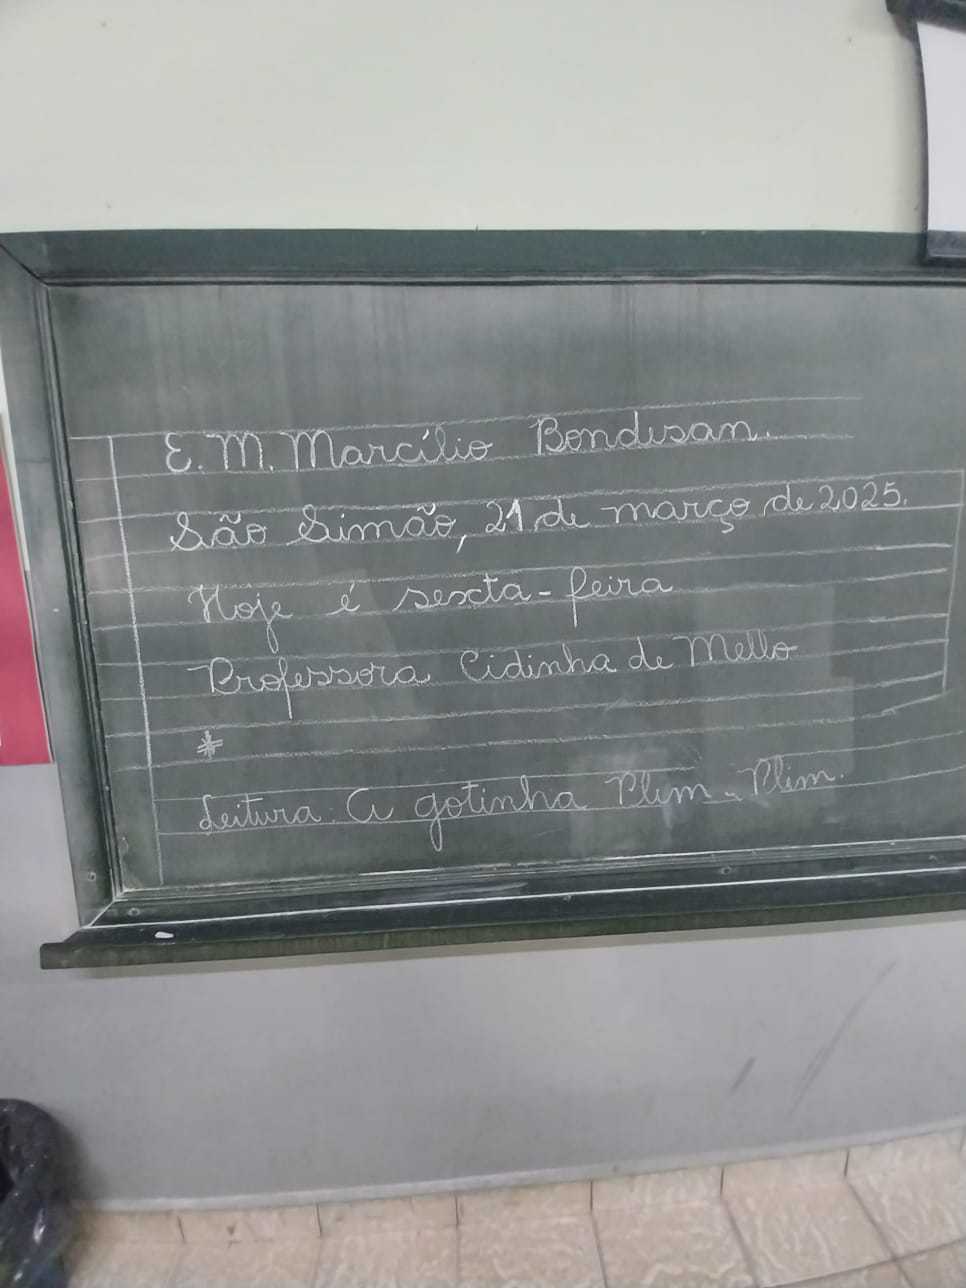 E. M. Marcílio Bondisan.
São Simão, 21 de março de 2025.
Hoje é sexta-feira
Professora Cidinha de Mello
*
Leitura: A gotinha Plim, Plim.